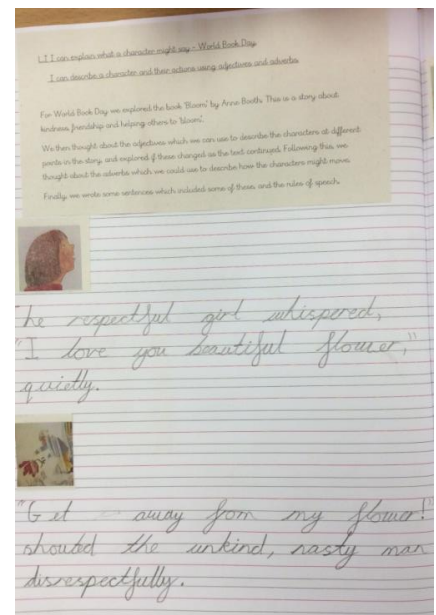 L.I. I can explain what a character might say – World Book Day
I can describe a character and their actions using adjectives and adverbs
For World Book Day we explored the book 'Bloom' by Anne Booth. This is a story about
kindness, friendship and helping others to 'bloom'.
We then thought about the adjectives which we can use to describe the characters at different
points in the story and explored if these changed as the text continued. Following this, we
thought about the adverbs which we could use to describe how the characters might move.
Finally, we wrote some sentences which included some of those, and the rules of speech.
he respectful girl whispered,
"I love you beautiful flower,"
quietly.
"Get – away from my flower!"
shouted the unkind, nasty man
disrespectfully.